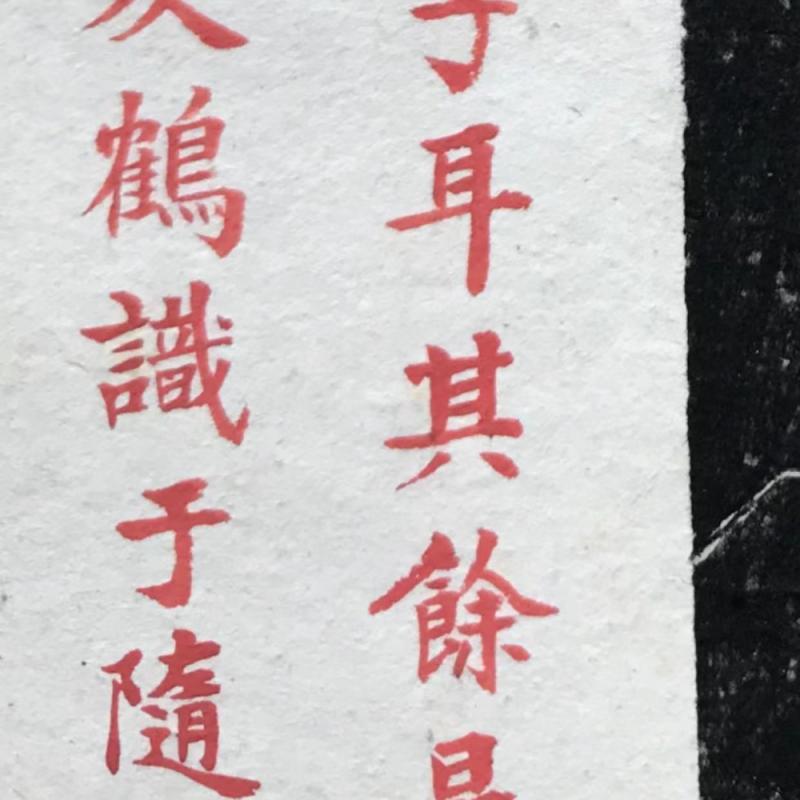 耳其餘
鶴識于隨